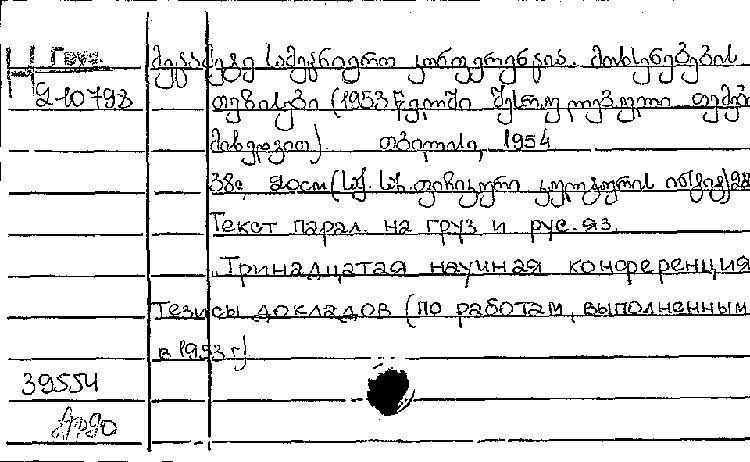 Н Груз.
2-10798
მეცამეტე სამეცნიერო კონფერენცია. მოხსენებების
თეზისები (1953 წელში შესრულებული თემების
მიხედვით). თბილისი, 1954
38с, 20см (საქ. სახ. ფიზიკური კულტურის ინ-ტი) 28
Текст парал. на груз и рус. яз.
Тринадцатая научная конференция
Тезисы докладов (по работам, выполненным
в 1953 г.)
39554